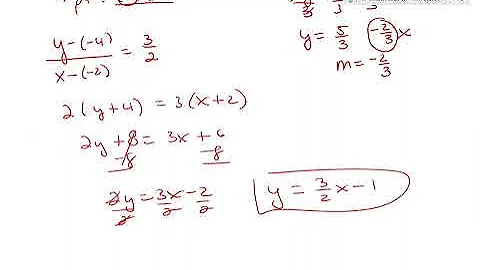 y-(-4)/x-(-2) = 3/2
2(y+4) = 3(x+2)
2y+8 = 3x+6
-8 -8
2y/2 = 3x/2 - 2/2
y = 3/2x-1
y = 5/3 -2/3x
m = -2/3